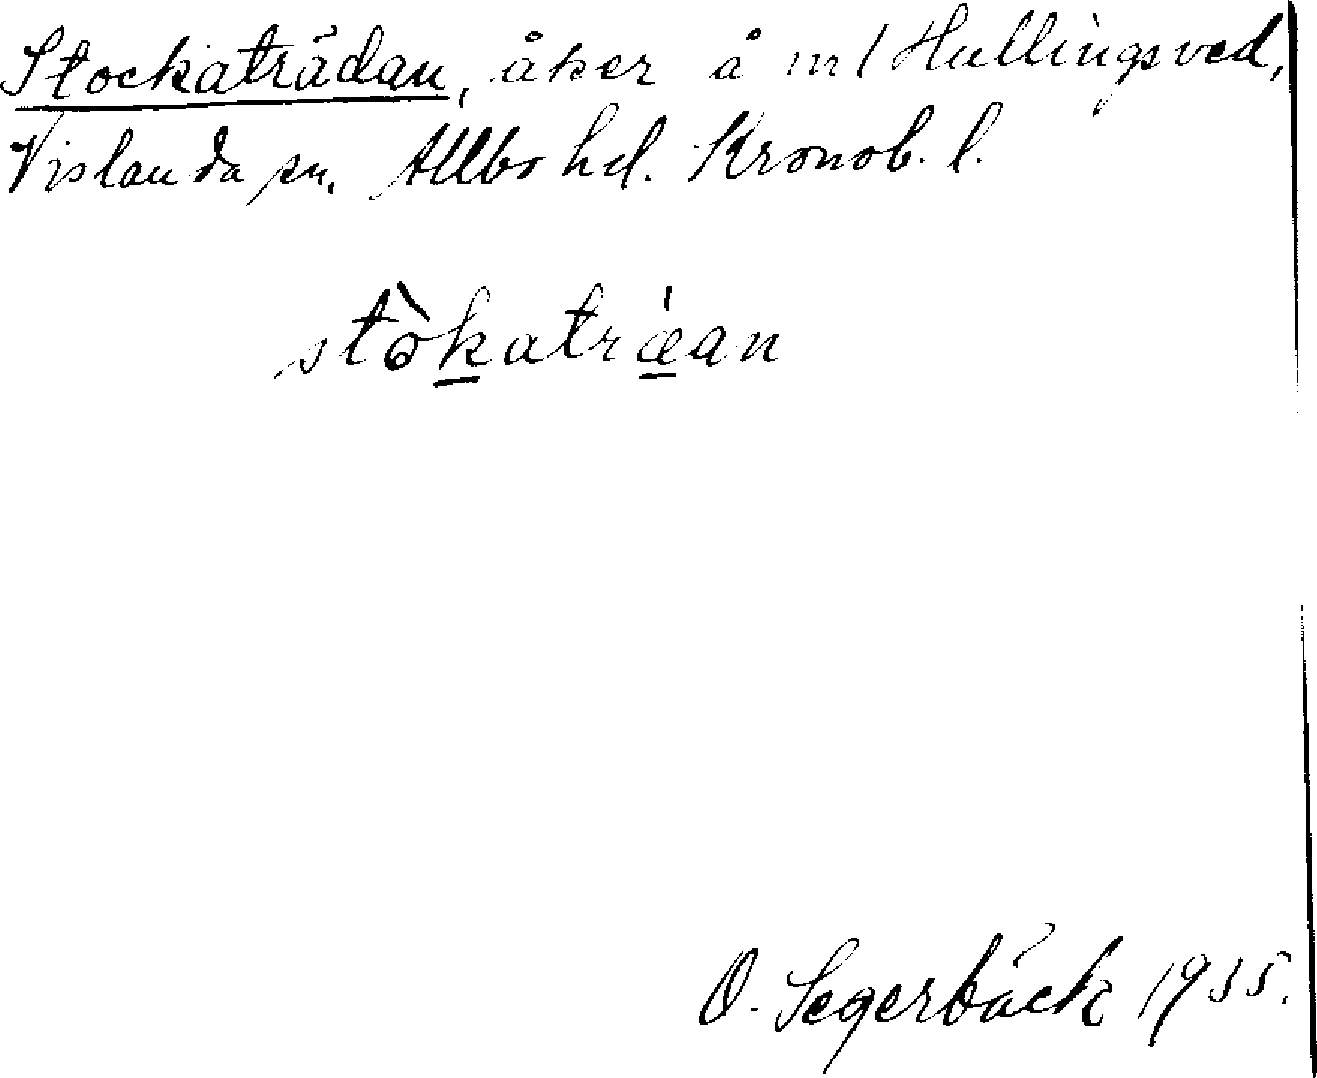 Stockaträdan, åker å m/ Hullingsved,
Vislanda sn. Allbo hd. Kronob. l.
stòkatræ̀an
O. Segerbäck 1935.